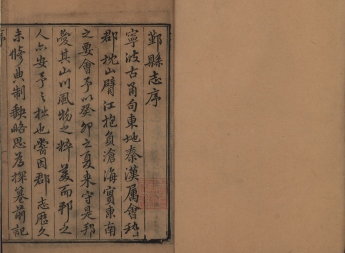 鄞縣志序
寧波古甬句東地秦漢屬會稽
郡枕山臂江抱負滄海實東南
之要會予以癸卯之夏来守是邦
愛其山川風物之粹美而邦之
人亦安予之拙也嘗因郡志歷久
未修典制缺略思為探纂前記
序